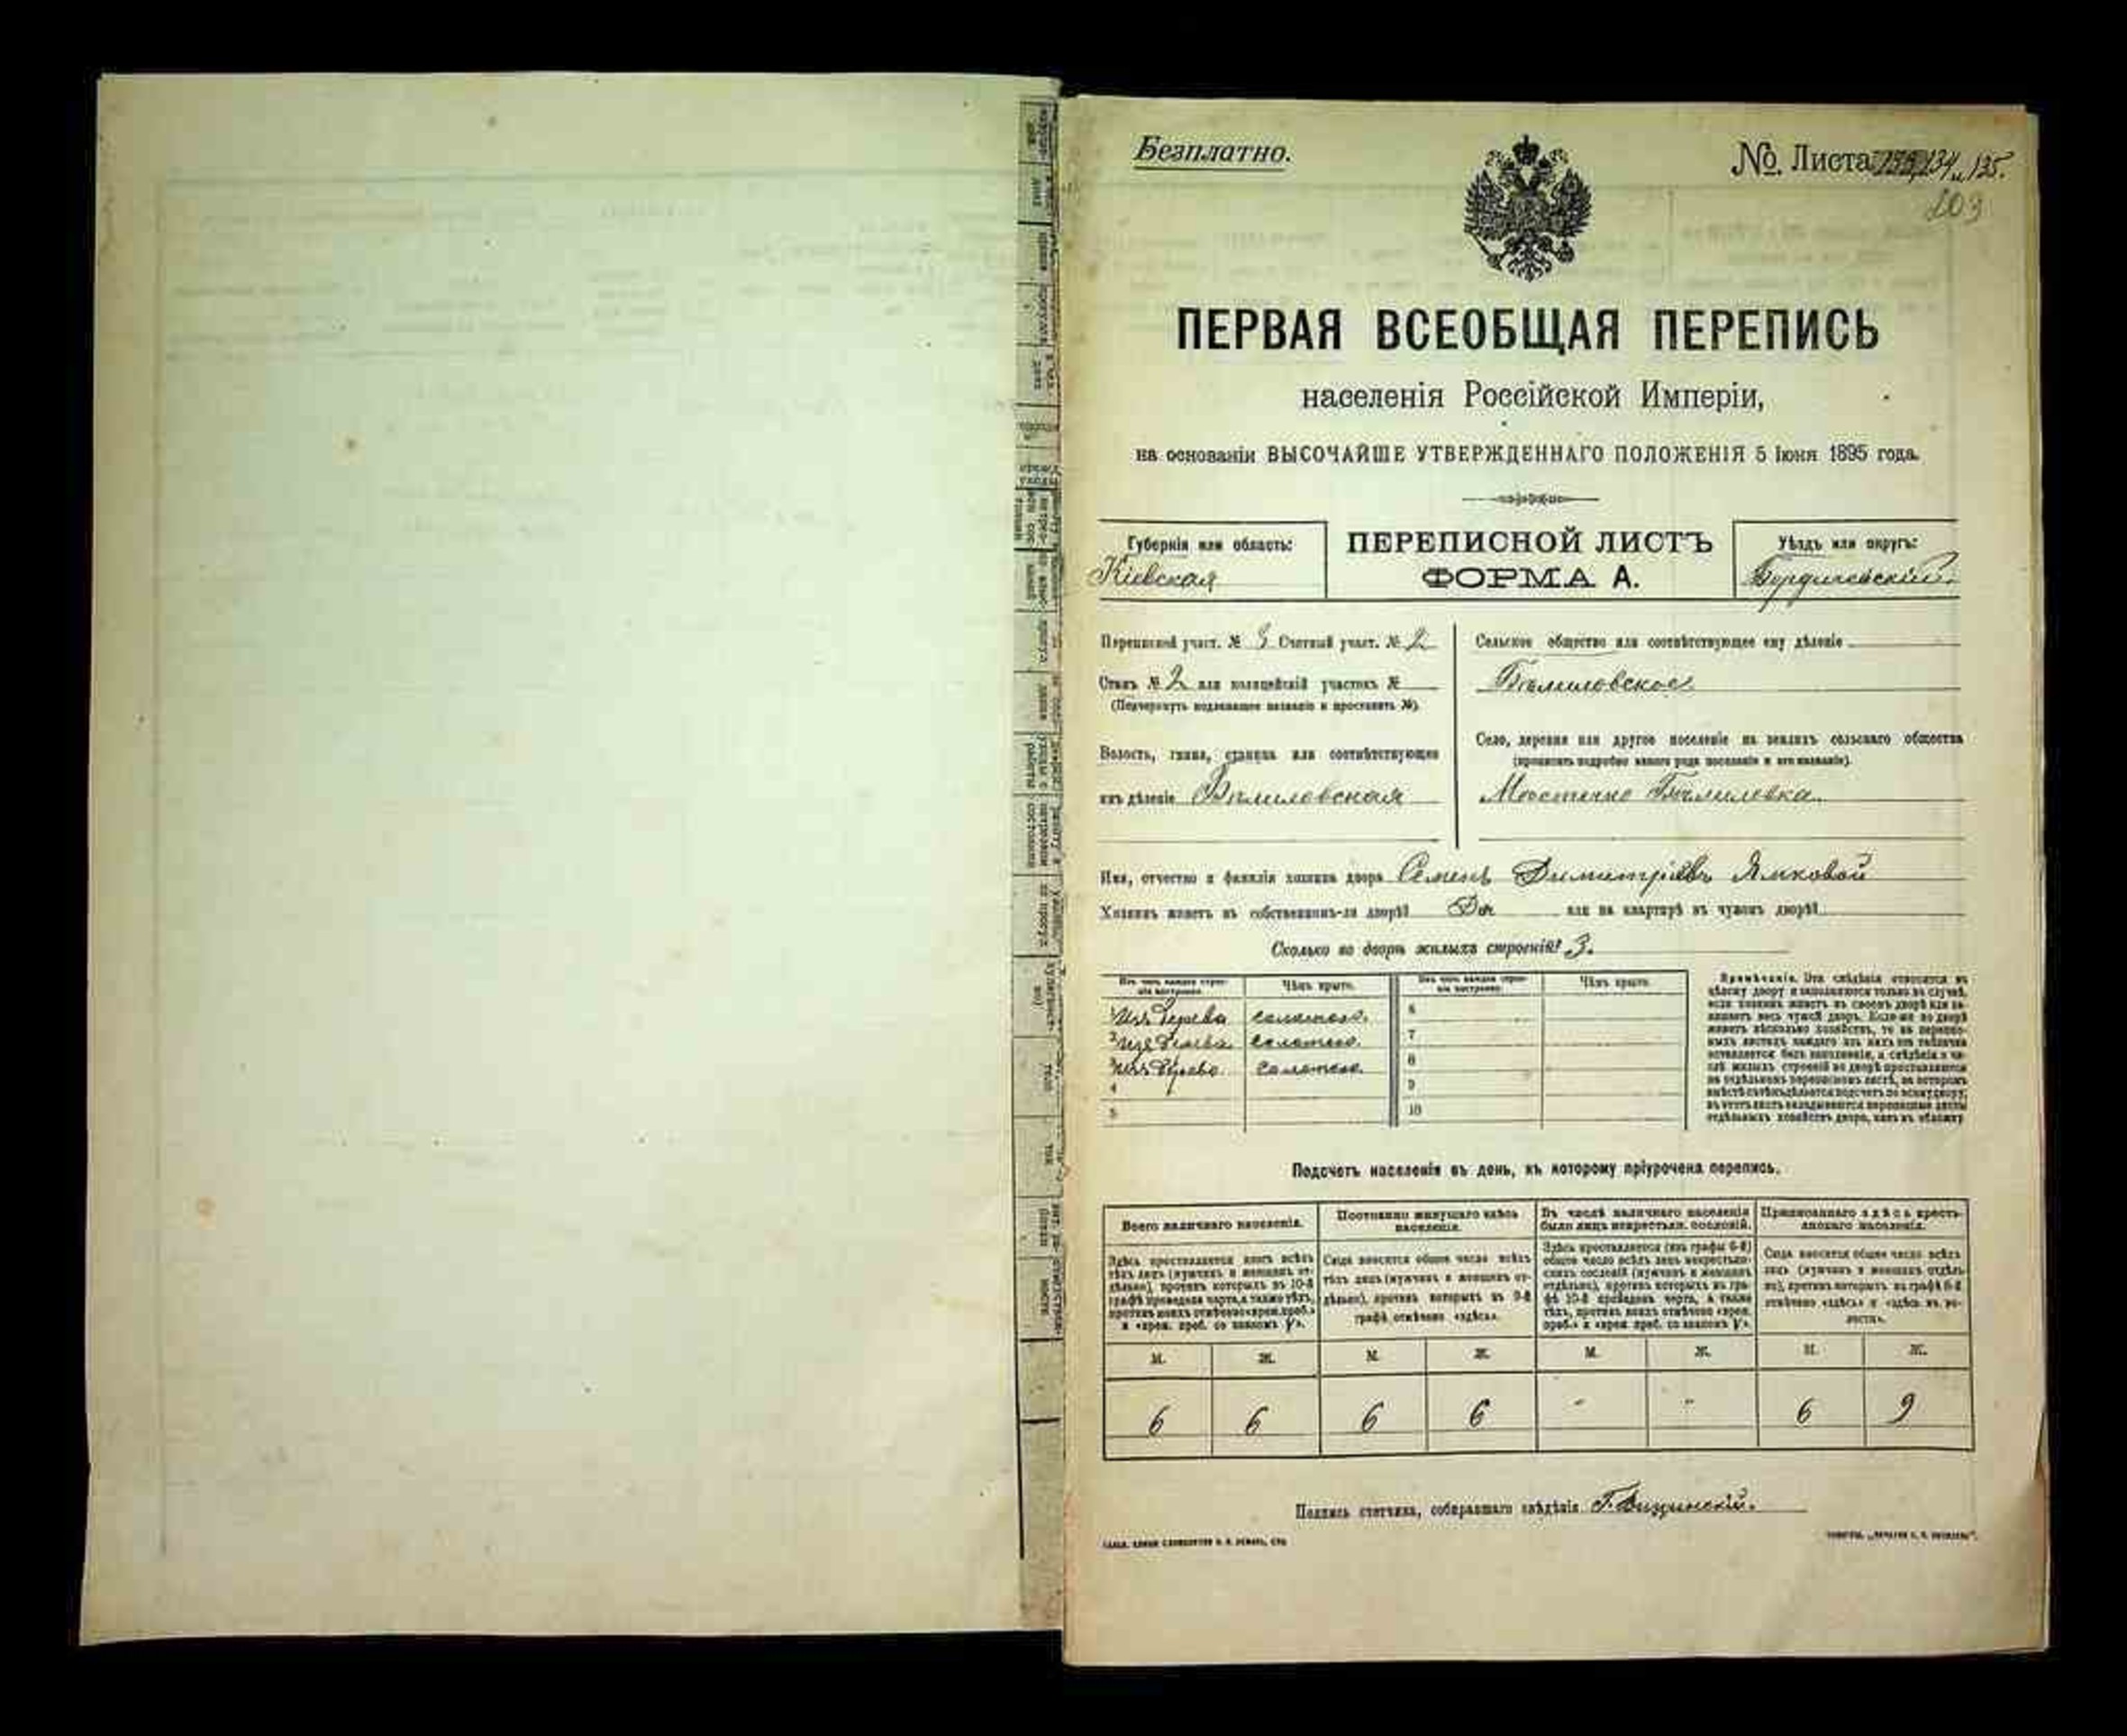 Безплатно.
№ Листа 134 и 135.
203
ПЕРВАЯ ВСЕОБЩАЯ ПЕРЕПИСЬ
населенія Россійской Имперіи,
на основаніи ВЫСОЧАЙШЕ УТВЕРЖДЕННАГО ПОЛОЖЕНІЯ 5 Іюня 1895 года.
Губернія или область:
Кіевская
ПЕРЕПИСНОЙ ЛИСТЪ
ФОРМА А.
Уѣздъ или округъ:
Бердичевскій.
Переписной участ. № 3 Счетный участ. № 2
Станъ № 2 или полицейскій участокъ №
(Подчеркнуть подлежащее названіе и проставить №).
Волость, гмина, станица или соотвѣтствующее
имъ дѣленіе Бѣлиловская
Сельское общество или соотвѣтствующее ему дѣленіе
Бѣлиловское
Село, деревня или другое поселеніе на земляхъ сельскаго общества
(прописать подробно какого рода поселеніе и его названіе).
Мѣстечко Бѣлиловка
Имя, отчество и фамилія хозяина двора Семенъ Димитріевъ Ямковой
Хозяинъ живетъ въ собственномъ-ли дворѣ? Да или на квартирѣ въ чужомъ дворѣ?
Сколько во дворѣ жилыхъ строеній? 3.
Изъ чего каждое строеніе построено.
Чѣмъ крыто.
Изъ чего каждое строеніе построено.
Чѣмъ крыто.
1 Изъ дерева соломою.
2 Изъ дерева соломою.
3 Изъ дерева соломою.
4
5
6
7
8
9
10
Примѣчаніе. Эти свѣдѣнія относятся къ
цѣлому двору и заполняются только въ случаѣ,
если хозяинъ живетъ въ своемъ дворѣ или занимаетъ
весь чужой дворъ. Если-же во дворѣ
живетъ нѣсколько хозяйствъ, то на переписныхъ
листахъ каждаго изъ нихъ эта табличка
оставляется безъ заполненія, а свѣдѣнія о числѣ
жилыхъ строеній во дворѣ проставляются
на отдѣльномъ переписномъ листѣ, на которомъ
вмѣстѣ съ тѣмъ дѣлается подсчетъ по всему двору;
въ этотъ листъ вкладываются переписные листы
отдѣльныхъ хозяйствъ двора, какъ въ обложку
Подсчетъ населенія въ день, къ которому пріурочена перепись.
Всего наличнаго населенія.
Здѣсь проставляется итогъ всѣхъ
тѣхъ лицъ (мужчинъ и женщинъ отдѣльно),
противъ которыхъ въ 10-й
графѣ проведена черта, а также тѣхъ,
противъ коихъ отмѣчено «врем. преб.»
и «врем. преб. со знакомъ V».
Постоянно живущаго здѣсь
населенія.
Сюда вносится общее число всѣхъ
тѣхъ лицъ (мужчинъ и женщинъ отдѣльно),
противъ которыхъ въ 9-й
графѣ отмѣчено «здѣсь».
Въ числѣ наличнаго населенія
было лицъ некрестьян. сословій.
Здѣсь проставляется (изъ графы 6-й)
общее число всѣхъ лицъ некрестьянскихъ
сословій (мужчинъ и женщинъ
отдѣльно), противъ которыхъ въ графѣ
10-й проведена черта, а также
тѣхъ, противъ коихъ отмѣчено «врем.
преб.» и «врем. преб. со знакомъ V».
Приписаннаго здѣсь крестьянскаго
населенія.
Сюда вносится общее число всѣхъ
лицъ (мужчинъ и женщинъ отдѣльно),
противъ которыхъ въ графѣ 8-й
отмѣчено «здѣсь» и «здѣсь въ волости».
М. Ж. М. Ж. М. Ж. М. Ж.
6 6 6 6 - - 6 9
Подпись счетчика, собиравшаго свѣдѣнія